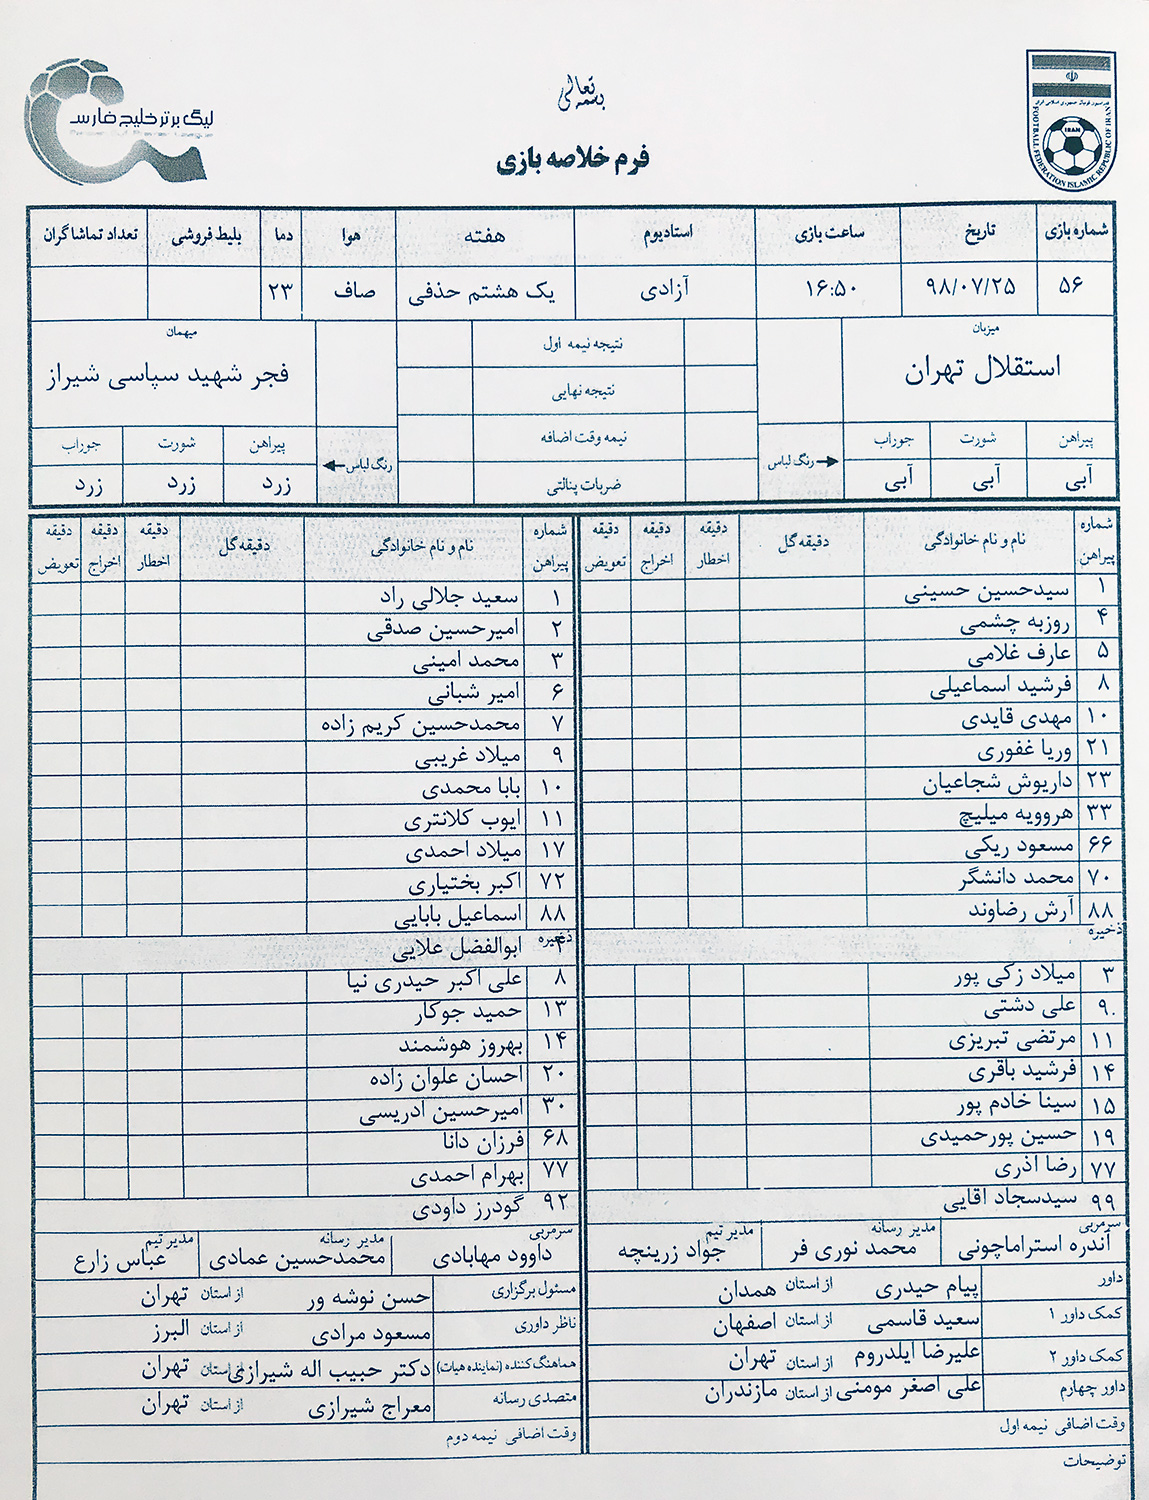 بسمه تعالی
لیگ برتر خلیج فارس
Persian Gulf Premier League
IRAN
FOOTBALL FEDERATION ISLAMIC REPUBLIC OF IRAN
فرم خلاصه بازی
شماره بازی تاریخ ساعت بازی استادیوم هفته هوا دما بلیط فروشی تعداد تماشاگران
۵۶ ۹۸/۰۷/۲۵ ۱۶:۵۰ آزادی یک هشتم حذفی صاف ۲۳
میزبان نتیجه نیمه اول میهمان
استقلال تهران نتیجه نهایی فجر شهید سپاسی شیراز
پیراهن شورت جوراب رنگ لباس نیمه وقت اضافه رنگ لباس پیراهن شورت جوراب
آبی آبی آبی ضربات پنالتی زرد زرد زرد
شماره پیراهن نام و نام خانوادگی دقیقه گل دقیقه اخطار دقیقه اخراج دقیقه تعویض
۱ سیدحسین حسینی
۴ روزبه چشمی
۵ عارف غلامی
۸ فرشید اسماعیلی
۱۰ مهدی قایدی
۲۱ وریا غفوری
۲۳ داریوش شجاعیان
۳۳ هروویه میلیچ
۶۶ مسعود ریکی
۷۰ محمد دانشگر
۸۸ آرش رضاوند
ذخیره
۳ میلاد زکی پور
۹ علی دشتی
۱۱ مرتضی تبریزی
۱۴ فرشید باقری
۱۵ سینا خادم پور
۱۹ حسین پورحمیدی
۷۷ رضا آذری
۹۹ سیدسجاد آقایی
سرمربی آندره استراماچونی مدیر رسانه محمد نوری فر مدیر تیم جواد زرینچه
داور پیام حیدری از استان همدان
کمک داور ۱ سعید قاسمی از استان اصفهان
کمک داور ۲ علیرضا ایلدروم از استان تهران
داور چهارم علی اصغر مومنی از استان مازندران
وقت اضافی نیمه اول
توضیحات
شماره پیراهن نام و نام خانوادگی دقیقه گل دقیقه اخطار دقیقه اخراج دقیقه تعویض
۱ سعید جلالی راد
۲ امیرحسین صدقی
۳ محمد امینی
۶ امیر شبانی
۷ محمدحسین کریم زاده
۹ میلاد غریبی
۱۰ بابا محمدی
۱۱ ایوب کلانتری
۱۷ میلاد احمدی
۷۲ اکبر بختیاری
۸۸ اسماعیل بابایی
ذخیره
۴ ابوالفضل علایی
۸ علی اکبر حیدری نیا
۱۳ حمید جوکار
۱۴ بهروز هوشمند
۲۰ احسان علوان زاده
۳۰ امیرحسین ادریسی
۶۸ فرزان دانا
۷۷ بهرام احمدی
۹۲ گودرز داودی
سرمربی داوود مهابادی مدیر رسانه محمدحسین عمادی مدیر تیم عباس زارع
مسئول برگزاری حسن نوشه ور از استان تهران
ناظر داوری مسعود مرادی از استان البرز
هماهنگ کننده (نماینده هیات) دکتر حبیب اله شیرازی از استان تهران
متصدی رسانه معراج شیرازی از استان تهران
وقت اضافی نیمه دوم